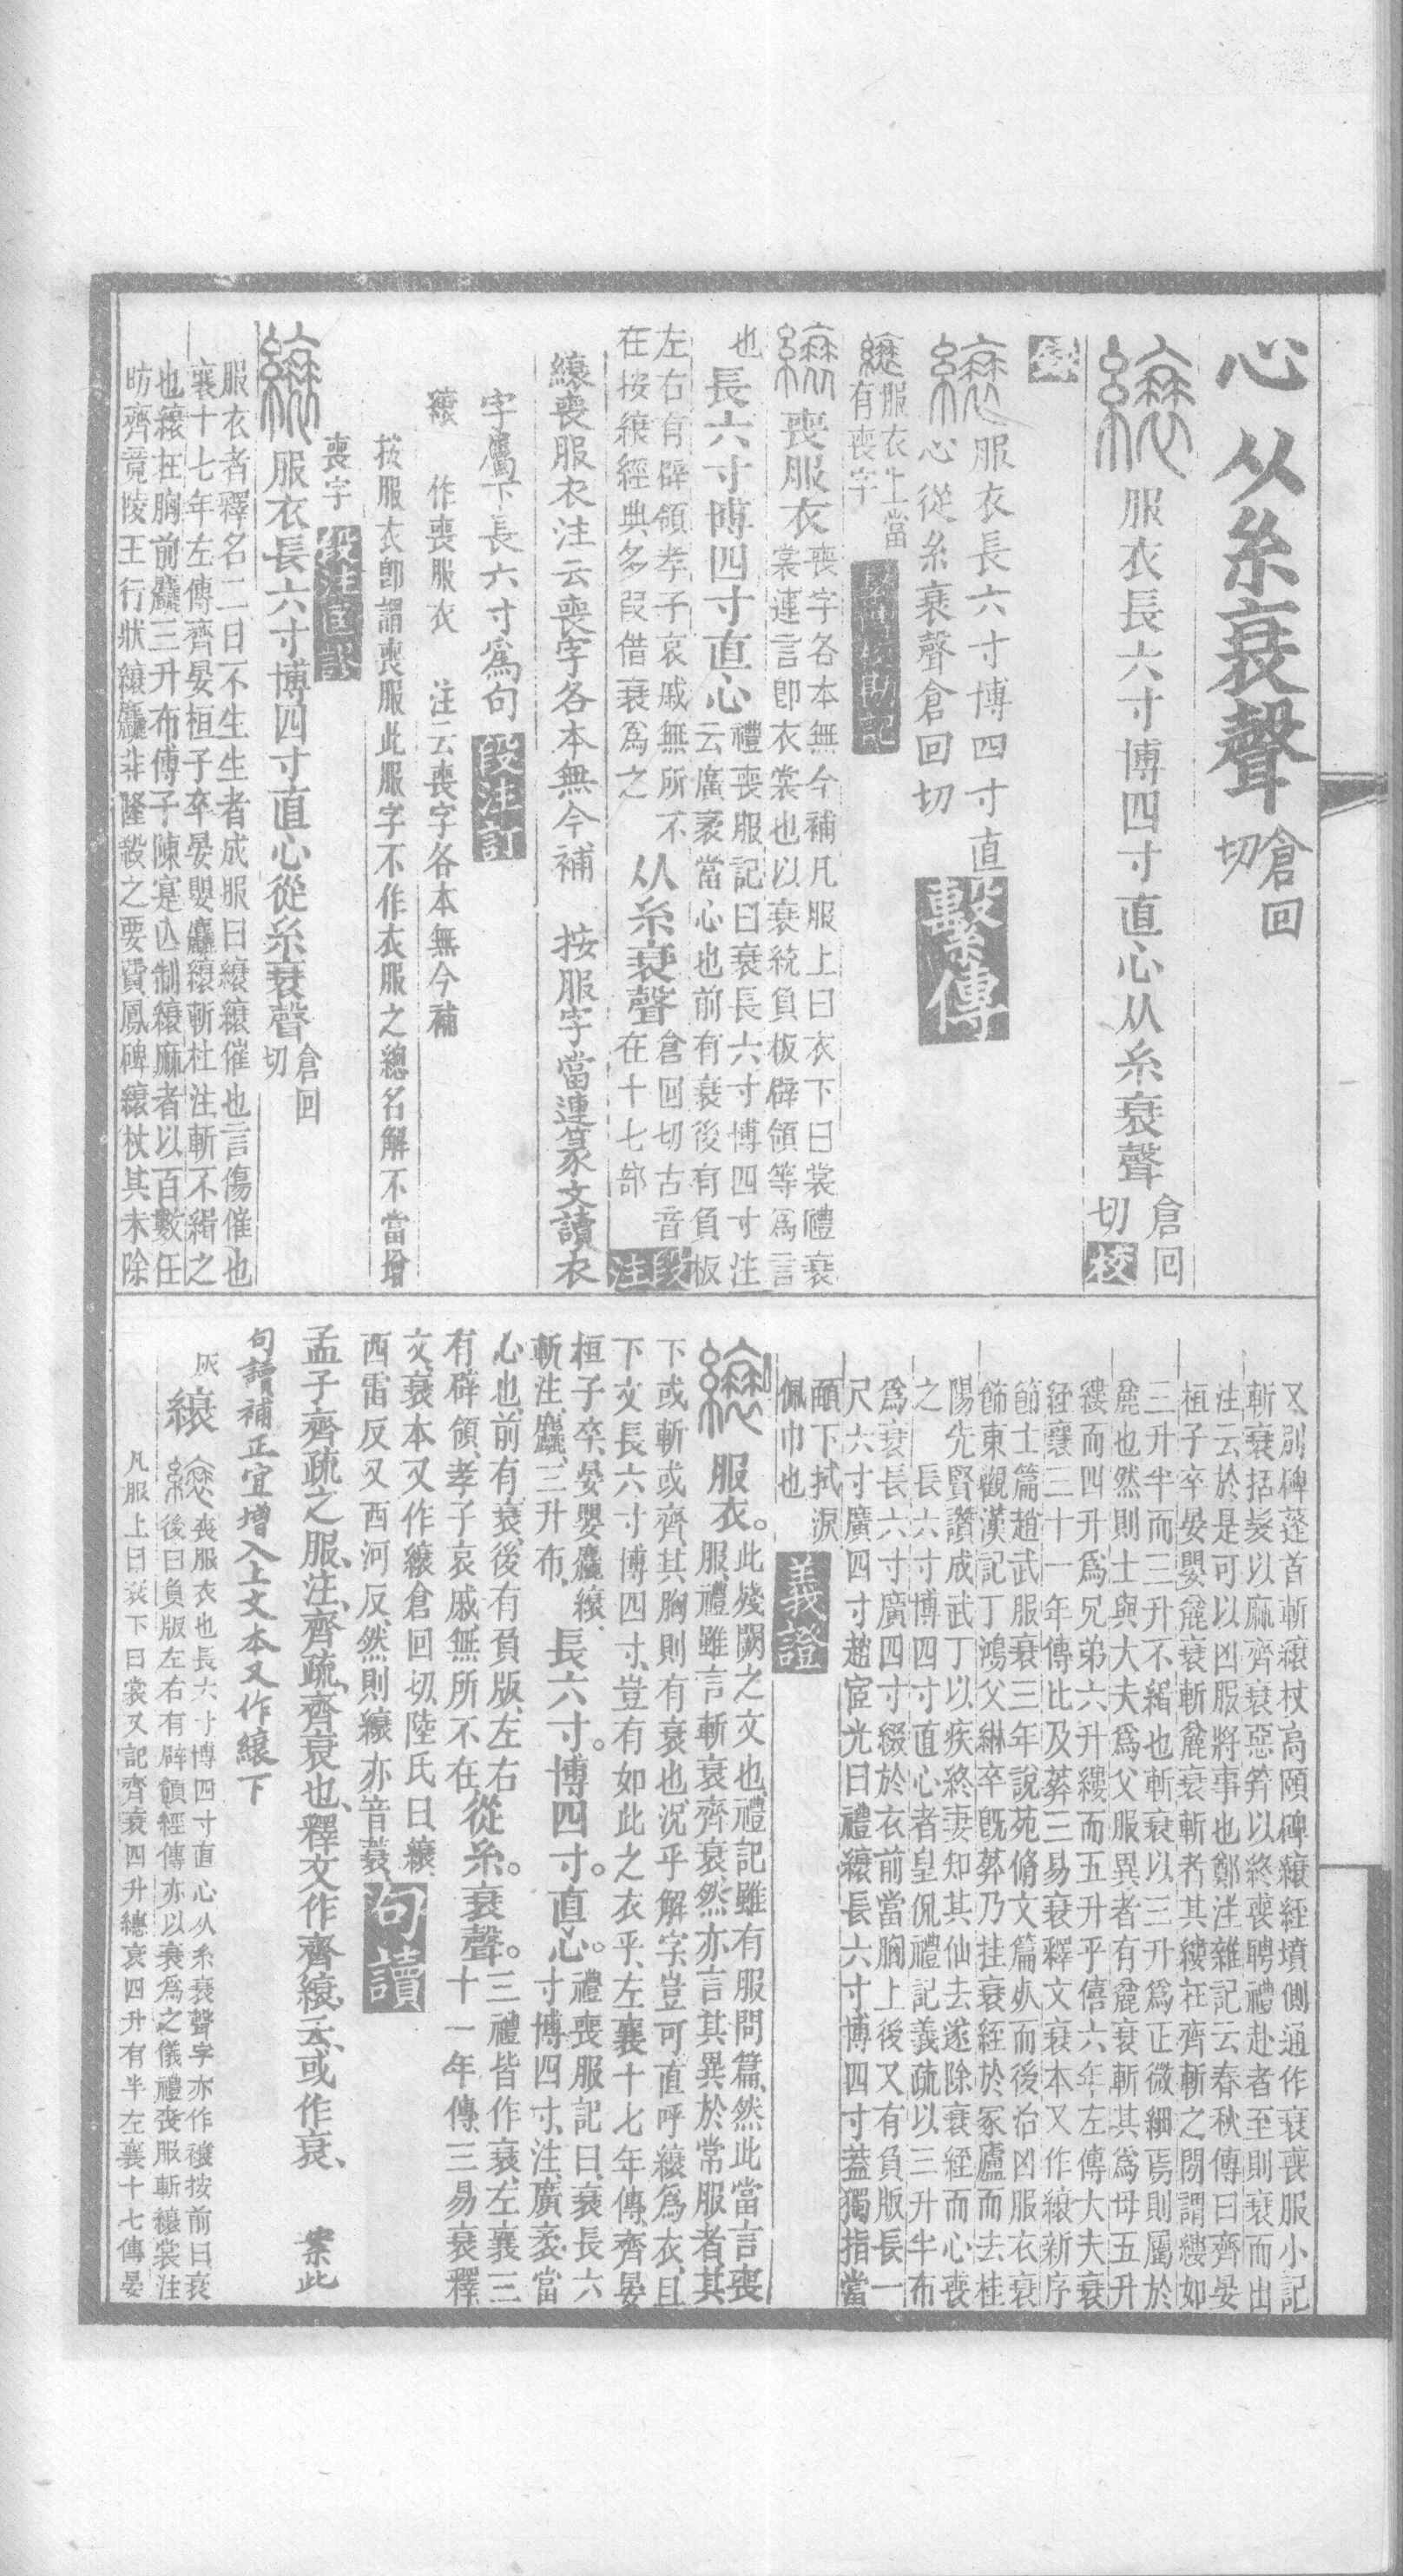 心从糸衰聲倉回切
服衣長六寸博四寸直心从糸衰聲倉回切校
錄
服衣長六寸博四寸直
心從糸衰聲倉回切繫傳
服衣上當
有喪字
喪服衣喪字各本無今補凡服上曰衣下曰裳禮衰
裳連言卽衣裳也以衰統負板辟領等爲言
也長六寸博四寸直心禮喪服記曰衰長六寸博四寸注
云廣袤當心也前有衰後有負板
左右有辟領孝子哀戚無所不
在按縗經典多叚借衰爲之从糸衰聲倉回切古音
在十七部段注
縗喪服衣注云喪字各本無今補 按服字當連篆文讀衣
字屬下長六寸爲句段注訂
縗 作喪服衣 注云喪字各本無今補
按服衣卽謂喪服此服字不作衣服之總名解不當增
喪字段注匡謬
服衣長六寸博四寸直心從糸衰聲倉回切
服衣者釋名二日不生生者成服曰縗縗催也言傷催也
襄十七年左傳齊晏桓子卒晏嬰麤縗斬杜注斬不緝之
也縗在胸前麤三升布傅子陳寔亾制縗麻者以百數任
昉齊竟陵王行狀縗麤非隆殺之要費鳳碑縗杖其未除
又別碑蓬首斬縗杖高頤碑縗絰墳側通作衰喪服小記
斬衰括髮以麻齊衰惡筓以終喪聘禮赴者至則衰而出
注云於是可以凶服將事也鄭注雜記云春秋傳曰齊晏
桓子卒晏嬰麄衰斬麄衰斬者其縷在齊斬之閒謂縷如
三升半而三升不緝也斬衰以三升爲正微細焉則屬於
麄也然則士與大夫爲父服異者有麄衰斬其爲母五升
縷而四升爲兄弟六升縷而五升乎僖六年左傳大夫衰
絰襄三十一年傳比及葬三易衰釋文衰本又作縗新序
節士篇趙武服衰三年說苑脩文篇必而後治凶服衣衰
飾東觀漢記丁鴻父綝卒旣葬乃挂衰絰於冢廬而去桂
陽先賢讚成武丁以疾終妻知其仙去遂除衰絰而心喪
之 長六寸博四寸直心者皇侃禮記義疏以三升半布
爲衰長六寸廣四寸綴於衣前當胸上後又有負版長一
尺六寸廣四寸趙宧光曰禮縗長六寸博四寸蓋獨指當
頤下拭淚
佩巾也義證
服衣。此殘闕之文也、禮記雖有服問篇、然此當言喪
服、禮雖言斬衰齊衰、然亦言其異於常服者、其
下或斬或齊、其胸則有衰也、況乎解字、豈可直呼縗爲衣、且
下文長六寸博四寸、豈有如此之衣乎、左襄十七年傳、齊晏
桓子卒、晏嬰麤縗
斬、注、麤、三升布、長六寸。博四寸。直心。禮喪服記曰、衰長六
寸博四寸、注、廣袤當
心也、前有衰、後有負版、左右
有辟領、孝子哀戚、無所不在從糸。衰聲。三禮皆作衰、左襄三
十一年傳、三易衰、釋
文、衰本又作縗、倉回切、陸氏曰、縗
西雷反、又西河反、然則縗亦音蓑句讀
孟子齊疏之服、注、齊疏、齊衰也、釋文作齊縗、云、或作衰、 案此
句讀補正宜增入上文本又作縗下
灰縗喪服衣也長六寸博四寸直心从糸衰聲字亦作䙑按前曰衰
後曰負版左右有辟領經傳亦以衰爲之儀禮喪服斬縗裳注
凡服上曰衰下曰裳又記齊衰四升總衰四升有半左襄十七傳晏